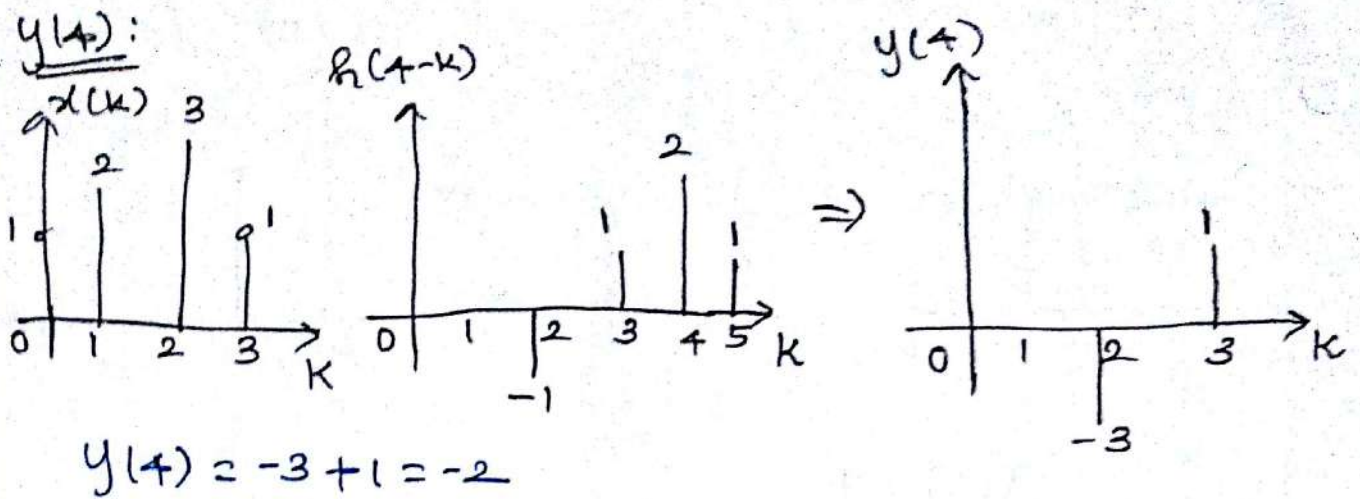 y(4):
x(k)
3
2
1
1
0 1 2 3 k
h(4-k)
2
1
1
0 1 2 3 4 5 k
-1
⇒
y(4)
1
0 1 2 3 k
-3
y(4) = -3 + 1 = -2